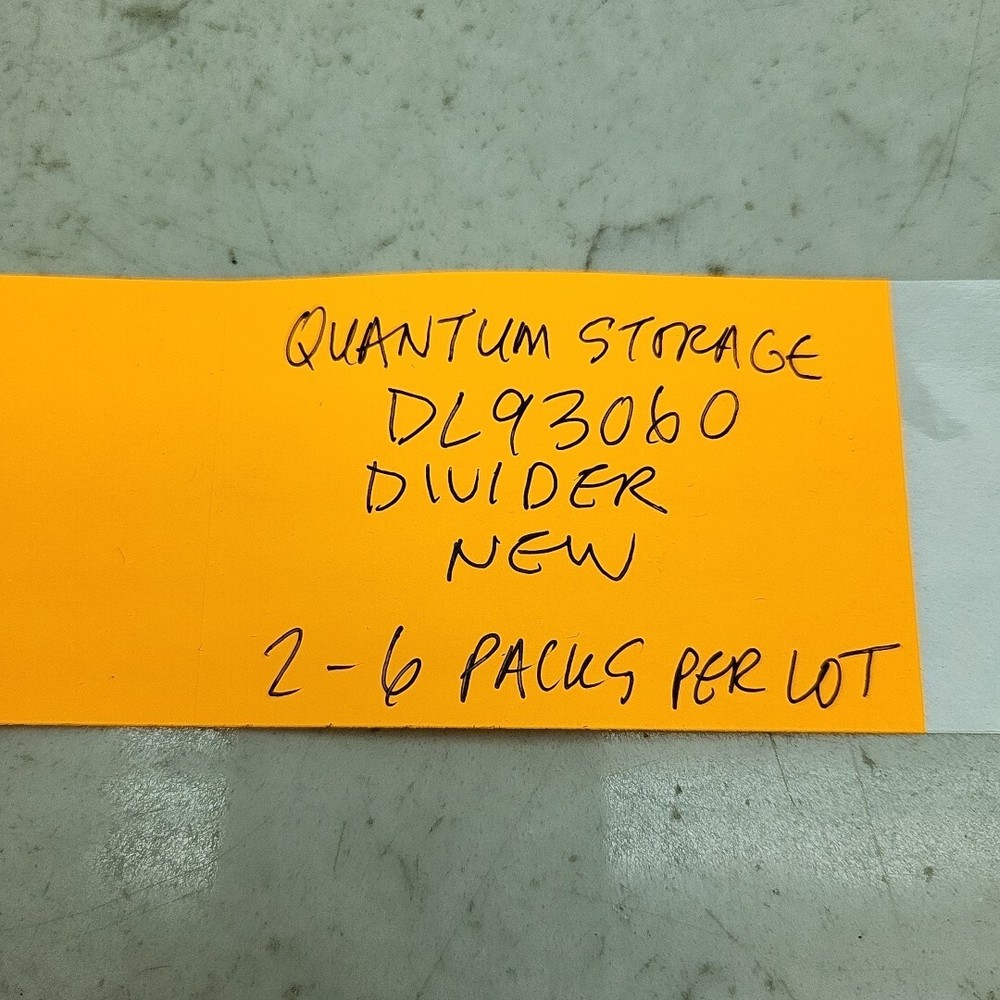 QUANTUM STORAGE
DL93060
DIVIDER
NEW
2-6 PACKS PER LOT